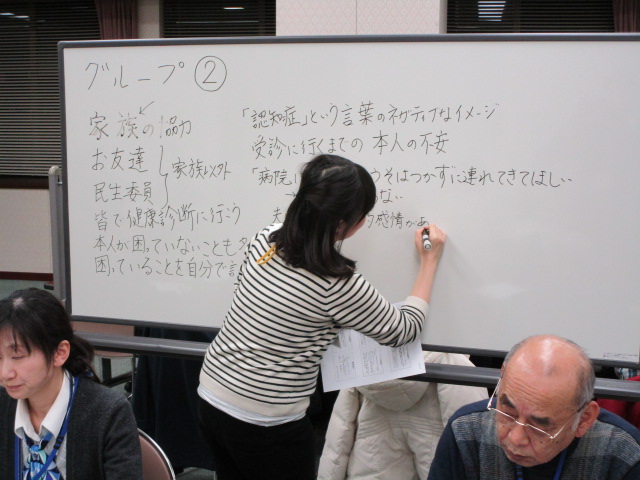 グループ ②
家族の協力
お友達
民生委員
家族以外
皆で健康診断に行こう
本人が困っていないことも多
困っていることを自分で言
「認知症」という言葉のネガティブなイメージ
受診に行くまでの 本人の不安
「病院」 うそはつかずに連れてきてほしい
→ ない
感情があ